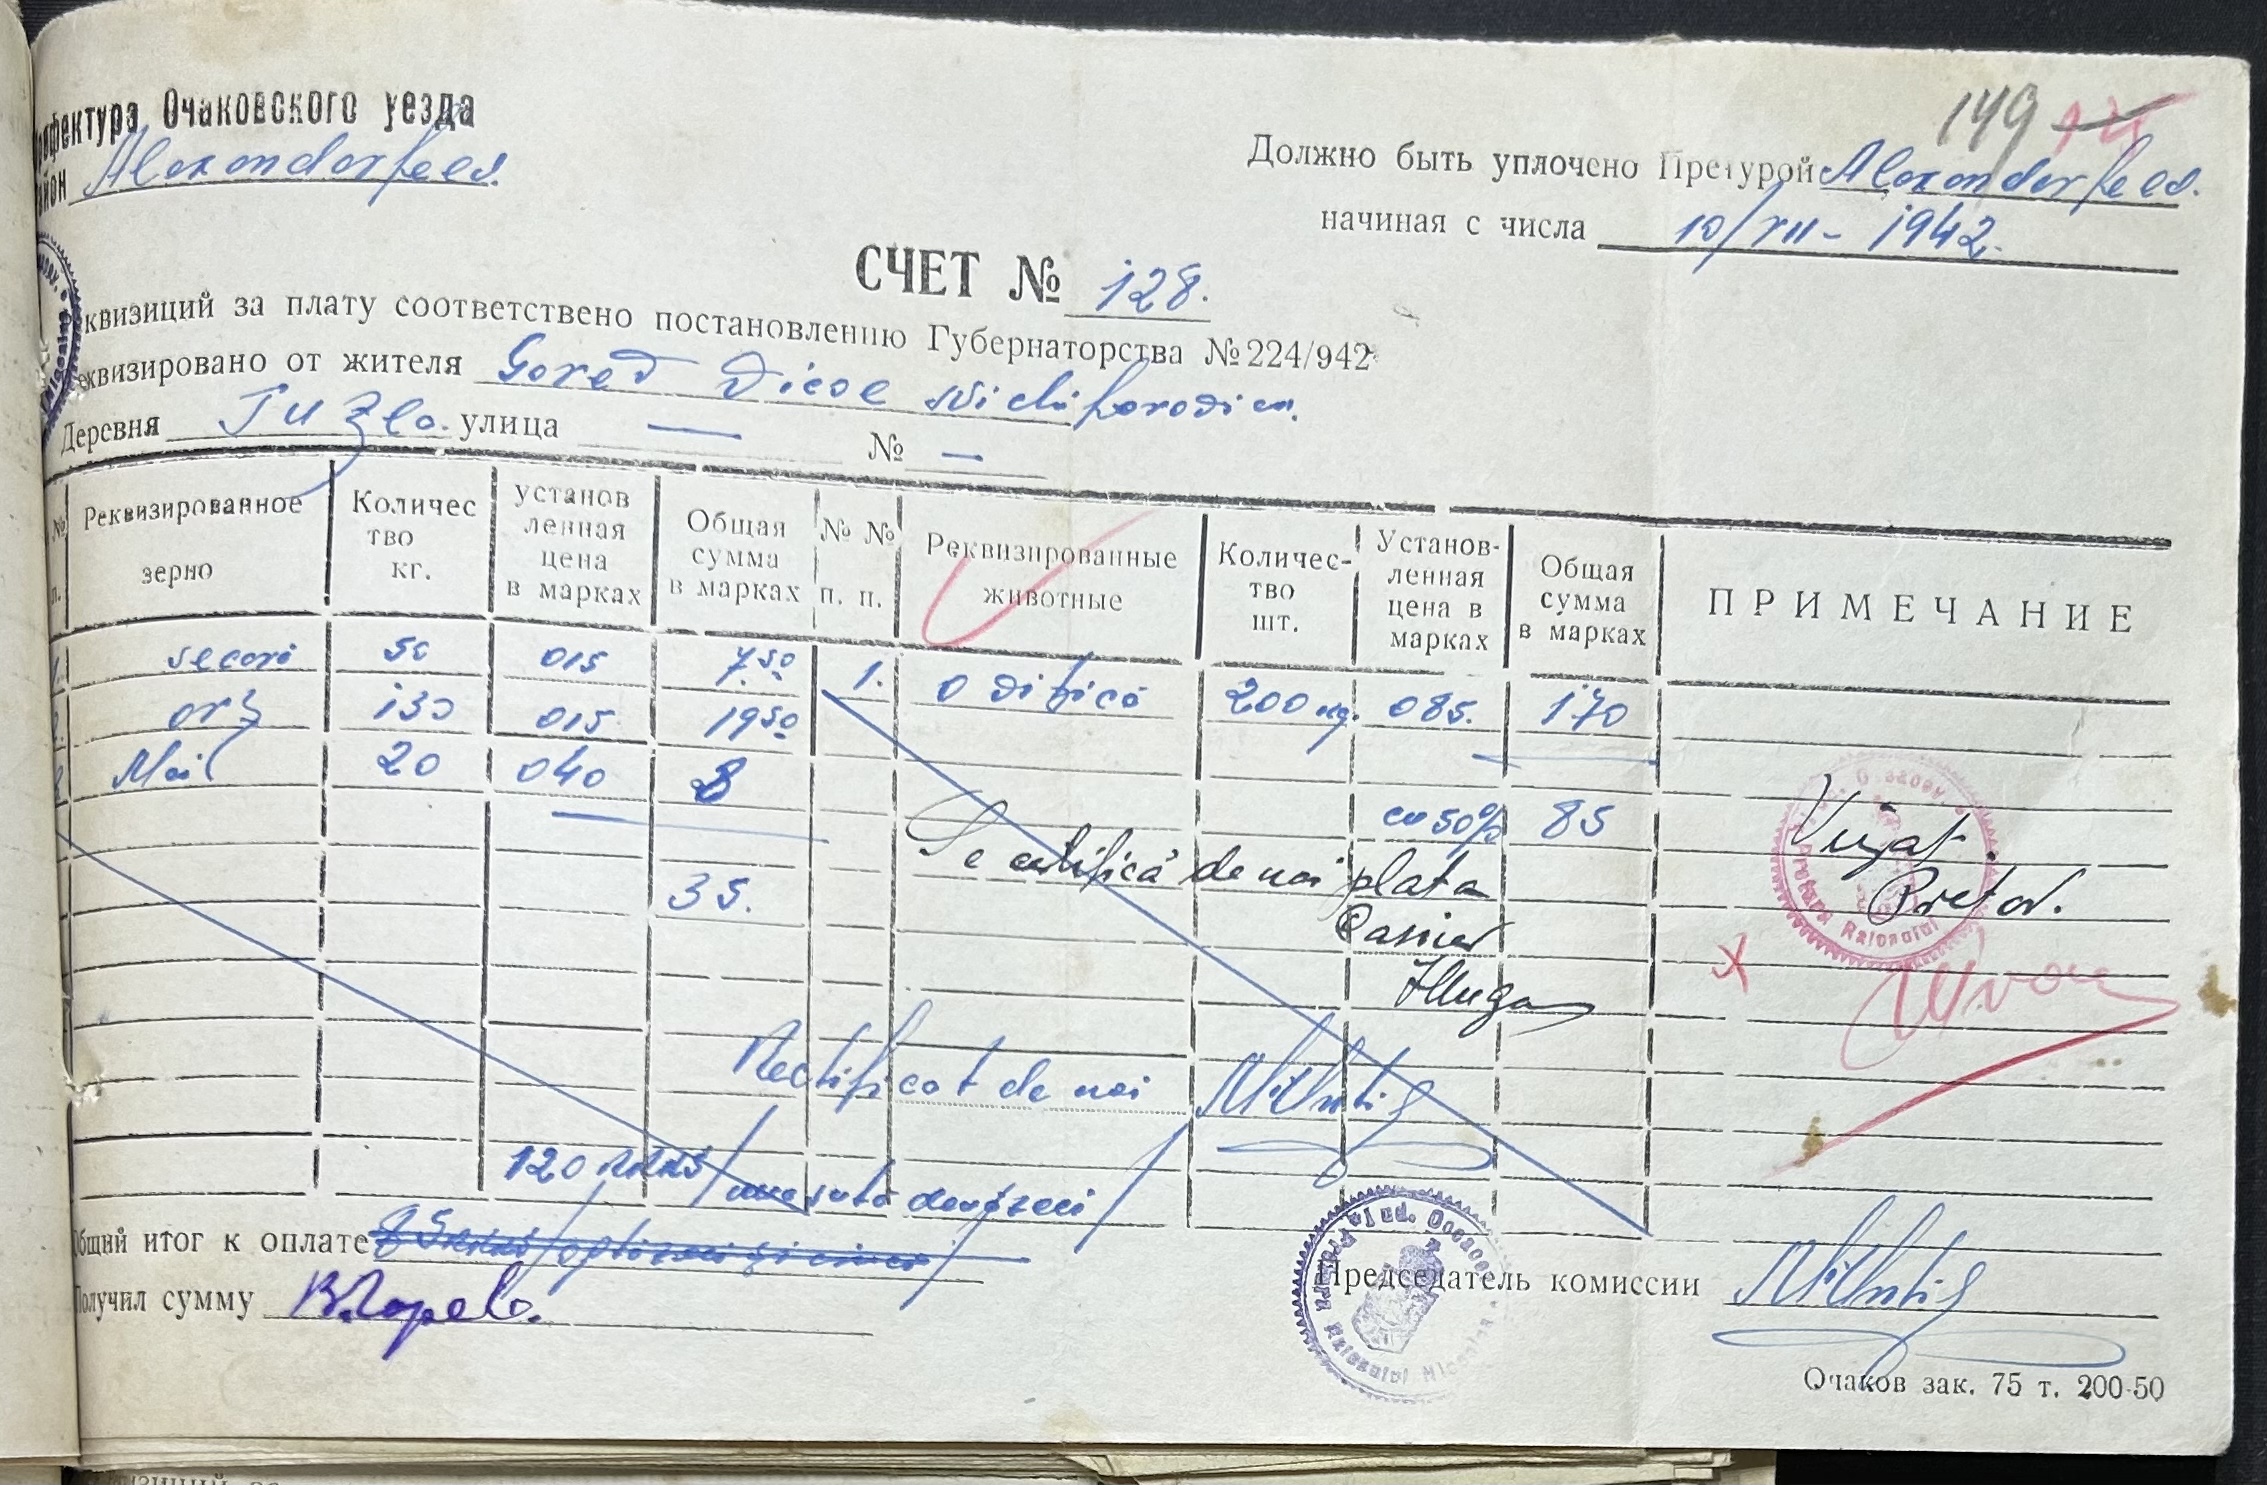 префектура Очаковского уезда
район Alexandorfeld.
149
Должно быть уплочено Претурой Alexandorfeld.
начиная с числа 10/XII - 1942.
СЧЕТ № 128.
квизиций за плату соответствено постановлению Губернаторства № 224/942
еквизировано от жителя
Деревня Tuzla. улица — № —
№ п. Реквизированное зерно Количес тво кг. установ ленная цена в марках Общая сумма в марках № № п. п. Реквизированные животные Количес- тво шт. Установ- ленная цена в марках Общая сумма в марках ПРИМЕЧАНИЕ
1. secară 50 015 7.50 1. o vițică 200 kg. 085. 170
2. orz 130 015 19.50
Mei 20 040 8
cu 50% 85
35.
Se certifică de noi plata
Casier
Vizat.
Pretor.
Rectificat de noi
120 RKKS / una sută douăzeci /
Общий итог к оплате
Получил сумму В.Горев.
Председатель комиссии
Очаков зак. 75 т. 200-50